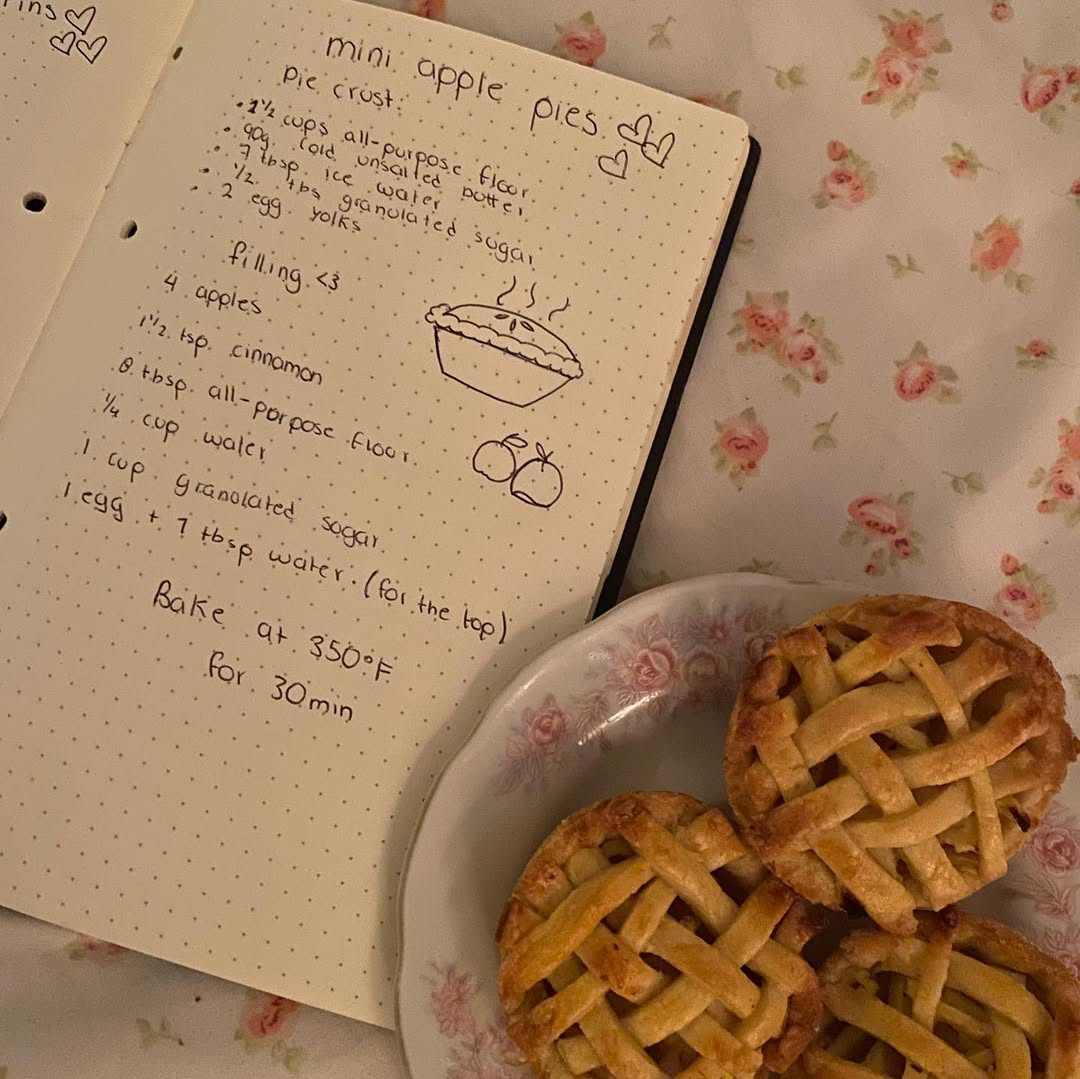 rins ♡
♡♡
mini apple pies ♡♡
♡
pie crust:
• 2 1/2 cups all-purpose floor.
• 90g. cold unsalted butter
• 7 tbsp ice water
• 1/2 tbs granulated sugar
• 2 egg yolks
filling <3
4 apples
1 1/2 tsp. cinnamon
8 tbsp. all-porpose floor.
1/4 cup water
1 cup granolated sogar.
1 egg + 7 tbsp water. (for the top)
Bake at 350°F
for 30min